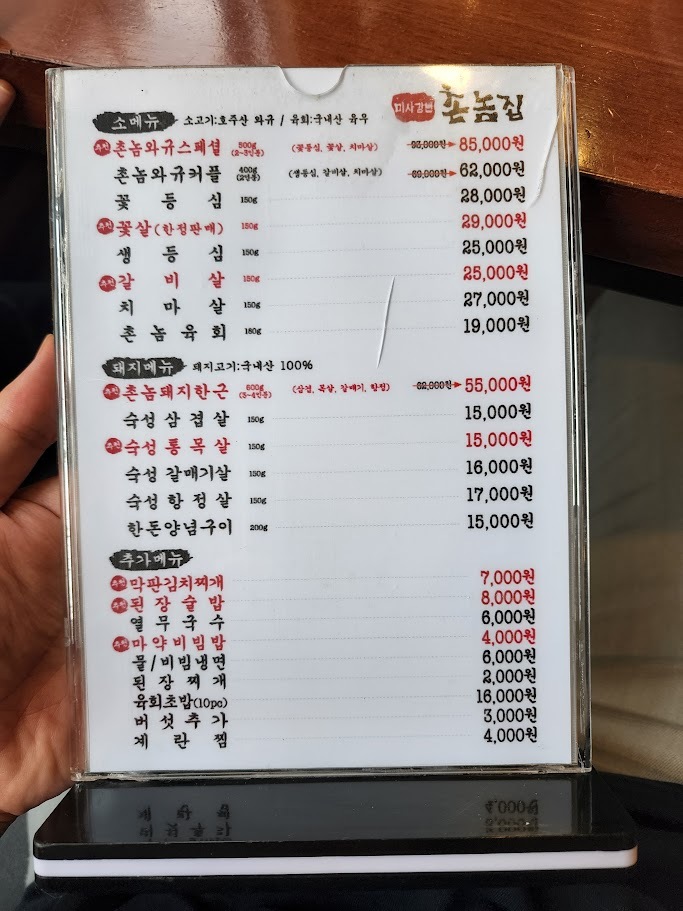 미사강변 촌놈집
소메뉴 소고기:호주산 와규 / 육회:국내산 육우
추천 촌놈와규스페셜 500g (2~3인분) (꽃등심, 꽃살, 치마살) 93,000원 85,000원
촌놈와규커플 400g (2인분) (생등심, 갈비살, 치마살) 69,000원 62,000원
꽃등심 150g 28,000원
추천 꽃살(한정판매) 150g 29,000원
생등심 150g 25,000원
추천 갈비살 150g 25,000원
치마살 150g 27,000원
촌놈육회 180g 19,000원
돼지메뉴 돼지고기:국내산 100%
추천 촌놈돼지한근 600g (3~4인분) (삼겹, 목살, 갈매기, 항정) 62,000원 55,000원
숙성삼겹살 150g 15,000원
추천 숙성통목살 150g 15,000원
숙성갈매기살 150g 16,000원
숙성항정살 150g 17,000원
한돈양념구이 200g 15,000원
추가메뉴
추천 막판김치찌개 7,000원
추천 된장술밥 8,000원
열무국수 6,000원
추천 마약비빔밥 4,000원
물/비빔냉면 6,000원
된장찌개 2,000원
육회초밥(10pc) 16,000원
버섯추가 3,000원
계란찜 4,000원